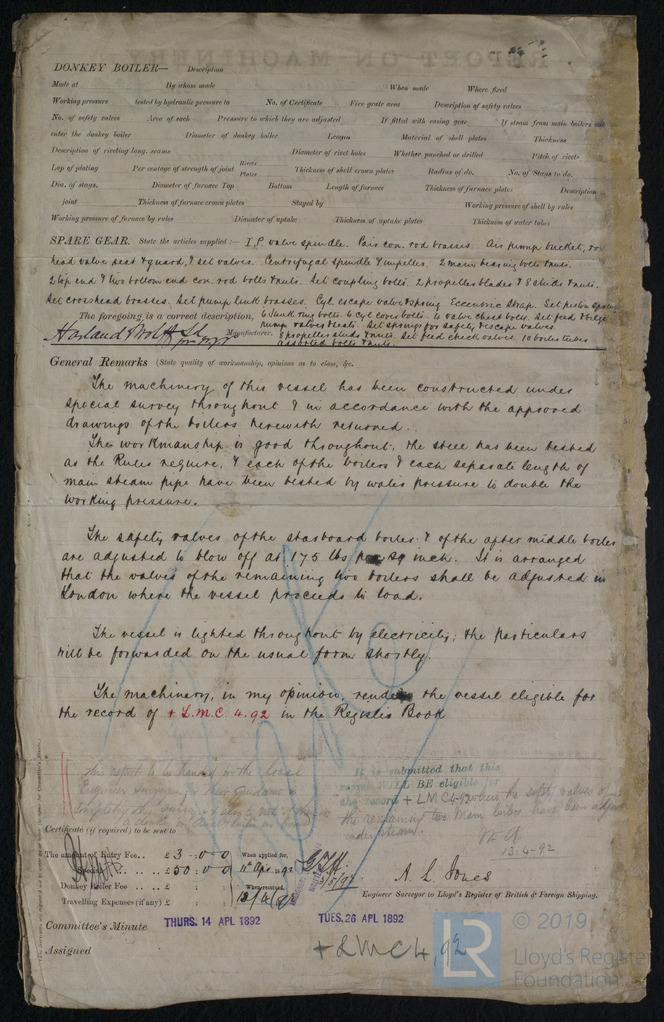 DONKEY BOILER— Description
Made at By whom made When made Where fixed
Working pressure tested by hydraulic pressure to No. of Certificate Fire grate area Description of safety valves
No. of safety valves Area of each Pressure to which they are adjusted If fitted with easing gear If steam from main boilers
enter the donkey boiler Diameter of donkey boiler Length Material of shell plates Thickness
Description of riveting long. seams Diameter of rivet holes Whether punched or drilled Pitch of rivets
Lap of plating Per centage of strength of joint Rivets Plates Thickness of shell crown plates Radius of do. No. of Stays to do.
Dia. of stays. Diameter of furnace Top Bottom Length of furnace Thickness of furnace plates Description
joint Thickness of furnace crown plates Stayed by Working pressure of shell by rules
Working pressure of furnace by rules Diameter of uptake Thickness of uptake plates Thickness of water tubes
SPARE GEAR. State the articles supplied:— I.P valve spindle. Pair con. rod brasses. Air pump bucket, rod
head valve seat & guard, & set valves. Centrifugal spindle & impeller. 2 main bearing bolts & nuts.
2 top end & two bottom end con. rod bolts & nuts. Set coupling bolts. 2 propeller blades & 8 studs & nuts.
Set crosshead brasses. Set pump link brasses. Cyl. escape valve & spring Eccentric Strap. Set piston springs
The foregoing is a correct description, 6 Junk ring bolts. 6 cyl cover bolts. 6 valve chest bolts. Set feed & bilge
pump valves & seats. Set springs for safety & escape valves.
Harland & Wolff Ld Manufacturer. 8 propeller studs & nuts. Set feed check valves. 10 boiler tubes
assorted bolts & nuts.
General Remarks (State quality of workmanship, opinions as to class, &c.
The machinery of this vessel has been constructed under
special survey throughout & in accordance with the approved
drawings of the boilers herewith returned.
The workmanship is good throughout, the steel has been tested
as the Rules require, & each of the boilers & each separate length of
main steam pipe have been tested by water pressure to double the
working pressure.
The safety valves of the starboard boiler & of the after middle boiler
are adjusted to blow off at 175 lbs per sq inch. It is arranged
that the valves of the remaining two boilers shall be adjusted in
London where the vessel proceeds to load.
The vessel is lighted throughout by electricity; the particulars
will be forwarded on the usual form shortly.
The machinery, in my opinion, renders the vessel eligible for
the record of + L.M.C. 4.92 in the Register Book
This report to be handed to the local
Engineer Surveyor for his guidance
It is submitted that this
vessel WILL BE eligible for
the record + LMC 4.92 when the safety valves of
the remaining two main boilers have been adjusted
under steam.
13.4.92
Certificate (if required) to be sent to
The amount of Entry Fee.. £ 3 - 0 - 0 When applied for,
£ 50 : 0 0 11th Apr. 92
Donkey Boiler Fee .. .. £ When received,
Travelling Expenses (if any) £
A. L. Jones
Engineer Surveyor to Lloyd's Register of British & Foreign Shipping.
Committee's Minute THURS. 14 APL 1892 TUES. 26 APL 1892
Assigned + LMC 4,92
© 2019
LR Lloyd's Register
Foundation